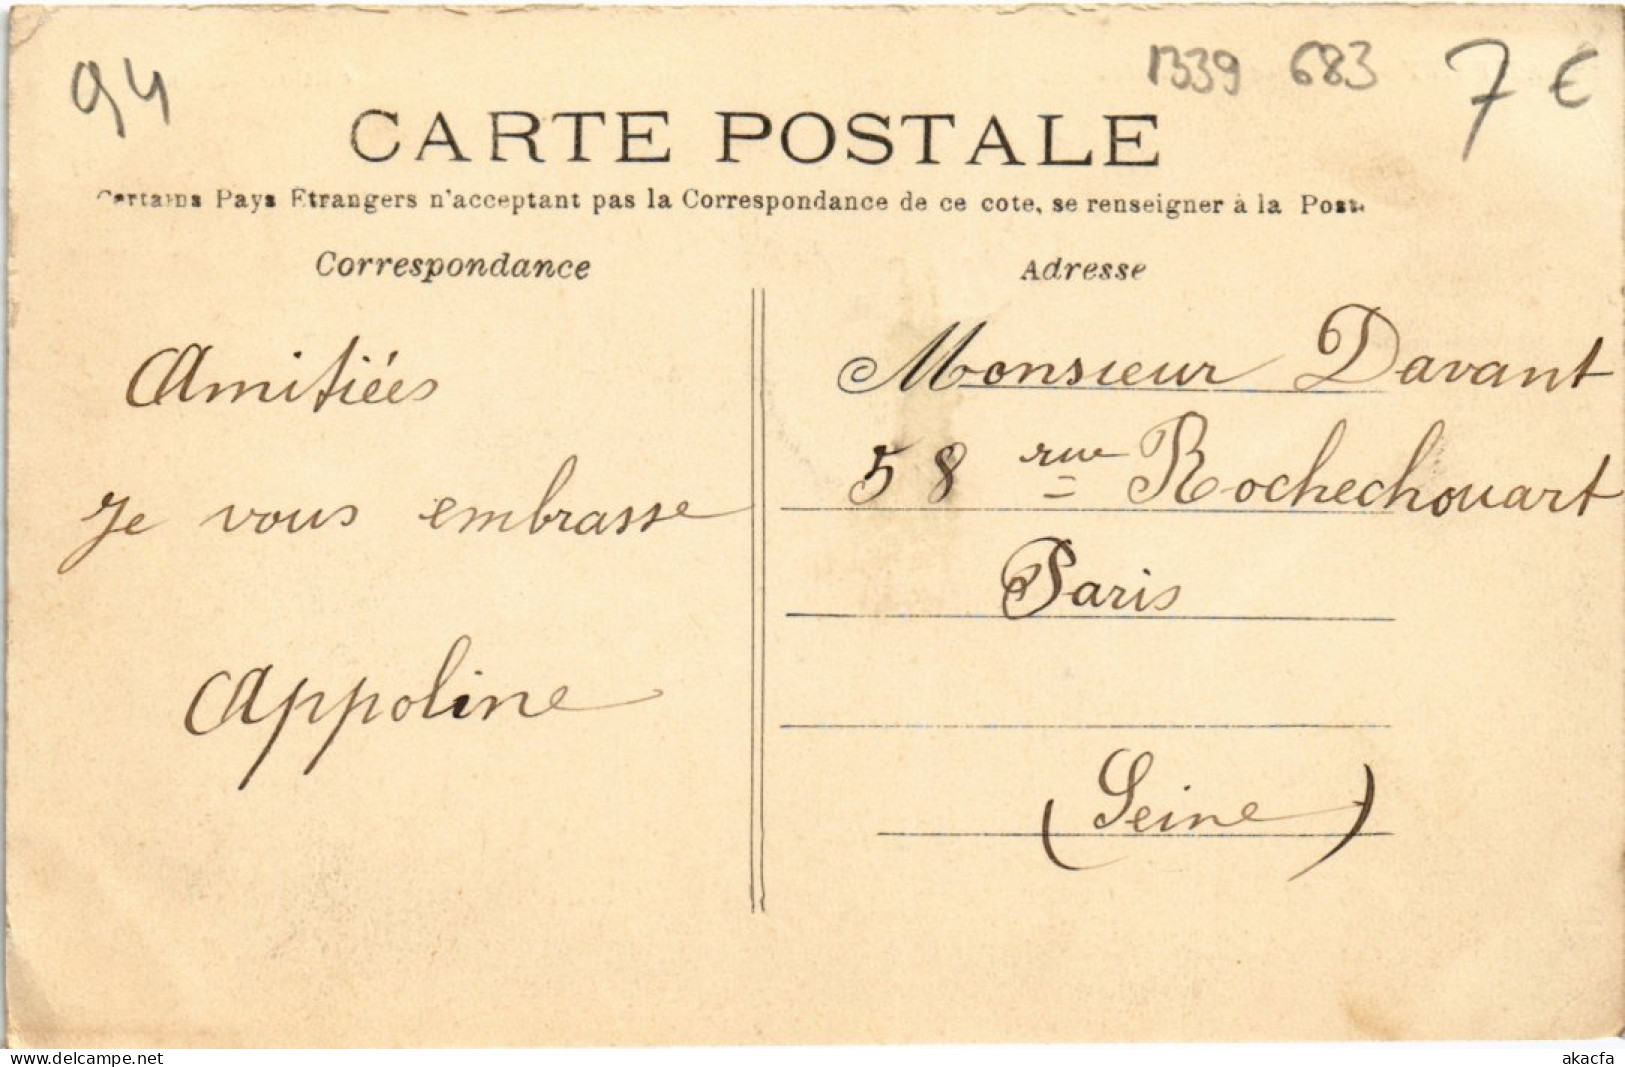 94
1339 683 7 €
CARTE POSTALE
Certains Pays Etrangers n'acceptent pas la Correspondance de ce cote, se renseigner à la Poste
Correspondance
Adresse
Amitiées
Je vous embrasse
Appoline
Monsieur Davant
58 rue Rochechouart
Paris
(Seine)
www.delcampe.net
akacfa